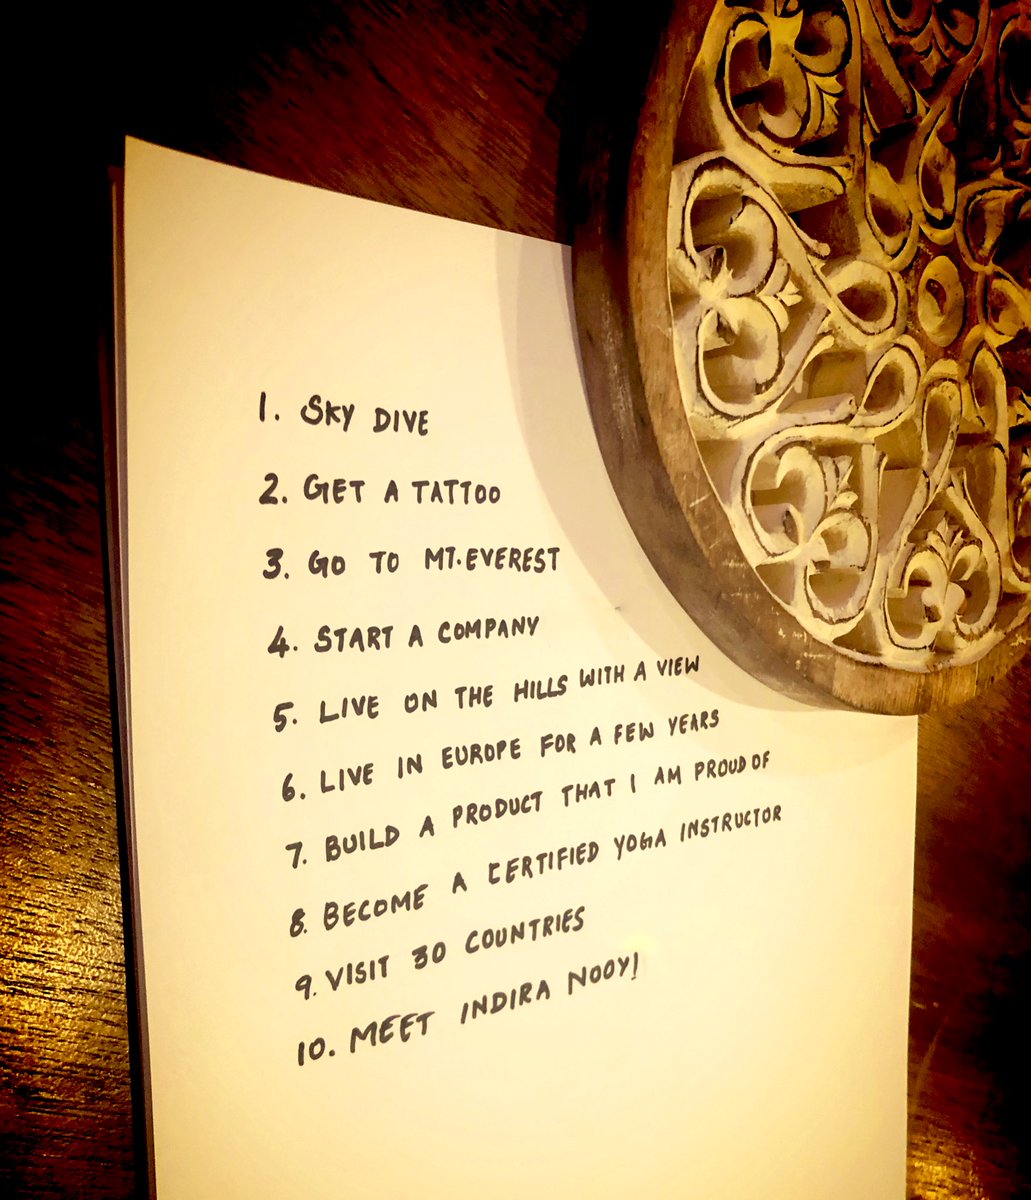 1. SKY DIVE
2. GET A TATTOO
3. GO TO MT. EVEREST
4. START A COMPANY
5. LIVE ON THE HILLS WITH A VIEW
6. LIVE IN EUROPE FOR A FEW YEARS
7. BUILD A PRODUCT THAT I AM PROUD OF
8. BECOME A CERTIFIED YOGA INSTRUCTOR
9. VISIT 30 COUNTRIES
10. MEET INDIRA NOOY!